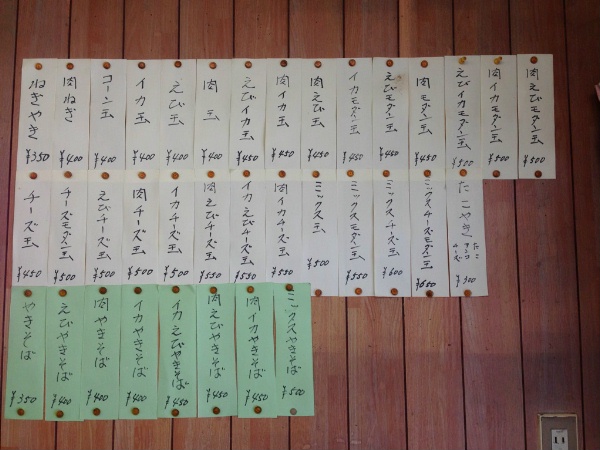 ねぎやき ¥350
肉ねぎ ¥400
コーン玉 ¥400
イカ玉 ¥400
えび玉 ¥400
肉玉 ¥400
えびイカ玉 ¥450
肉イカ玉 ¥450
肉えび玉 ¥450
イカモダン玉 ¥450
えびモダン玉 ¥450
肉モダン玉 ¥450
えびイカモダン玉 ¥500
肉イカモダン玉 ¥500
肉えびモダン玉 ¥500
チーズ玉 ¥450
チーズモダン玉 ¥500
えびチーズ玉 ¥500
肉チーズ玉 ¥500
イカチーズ玉 ¥500
肉えびチーズ玉 ¥550
イカえびチーズ玉 ¥550
肉イカチーズ玉 ¥550
ミックス玉 ¥500
ミックスモダン玉 ¥550
ミックスチーズ玉 ¥600
ミックスチーズモダン玉 ¥650
たこやき たこ チーズ ¥300
やきそば ¥350
えびやきそば ¥400
肉やきそば ¥400
イカやきそば ¥400
イカえびやきそば ¥450
肉えびやきそば ¥450
肉イカやきそば ¥450
ミックスやきそば ¥500